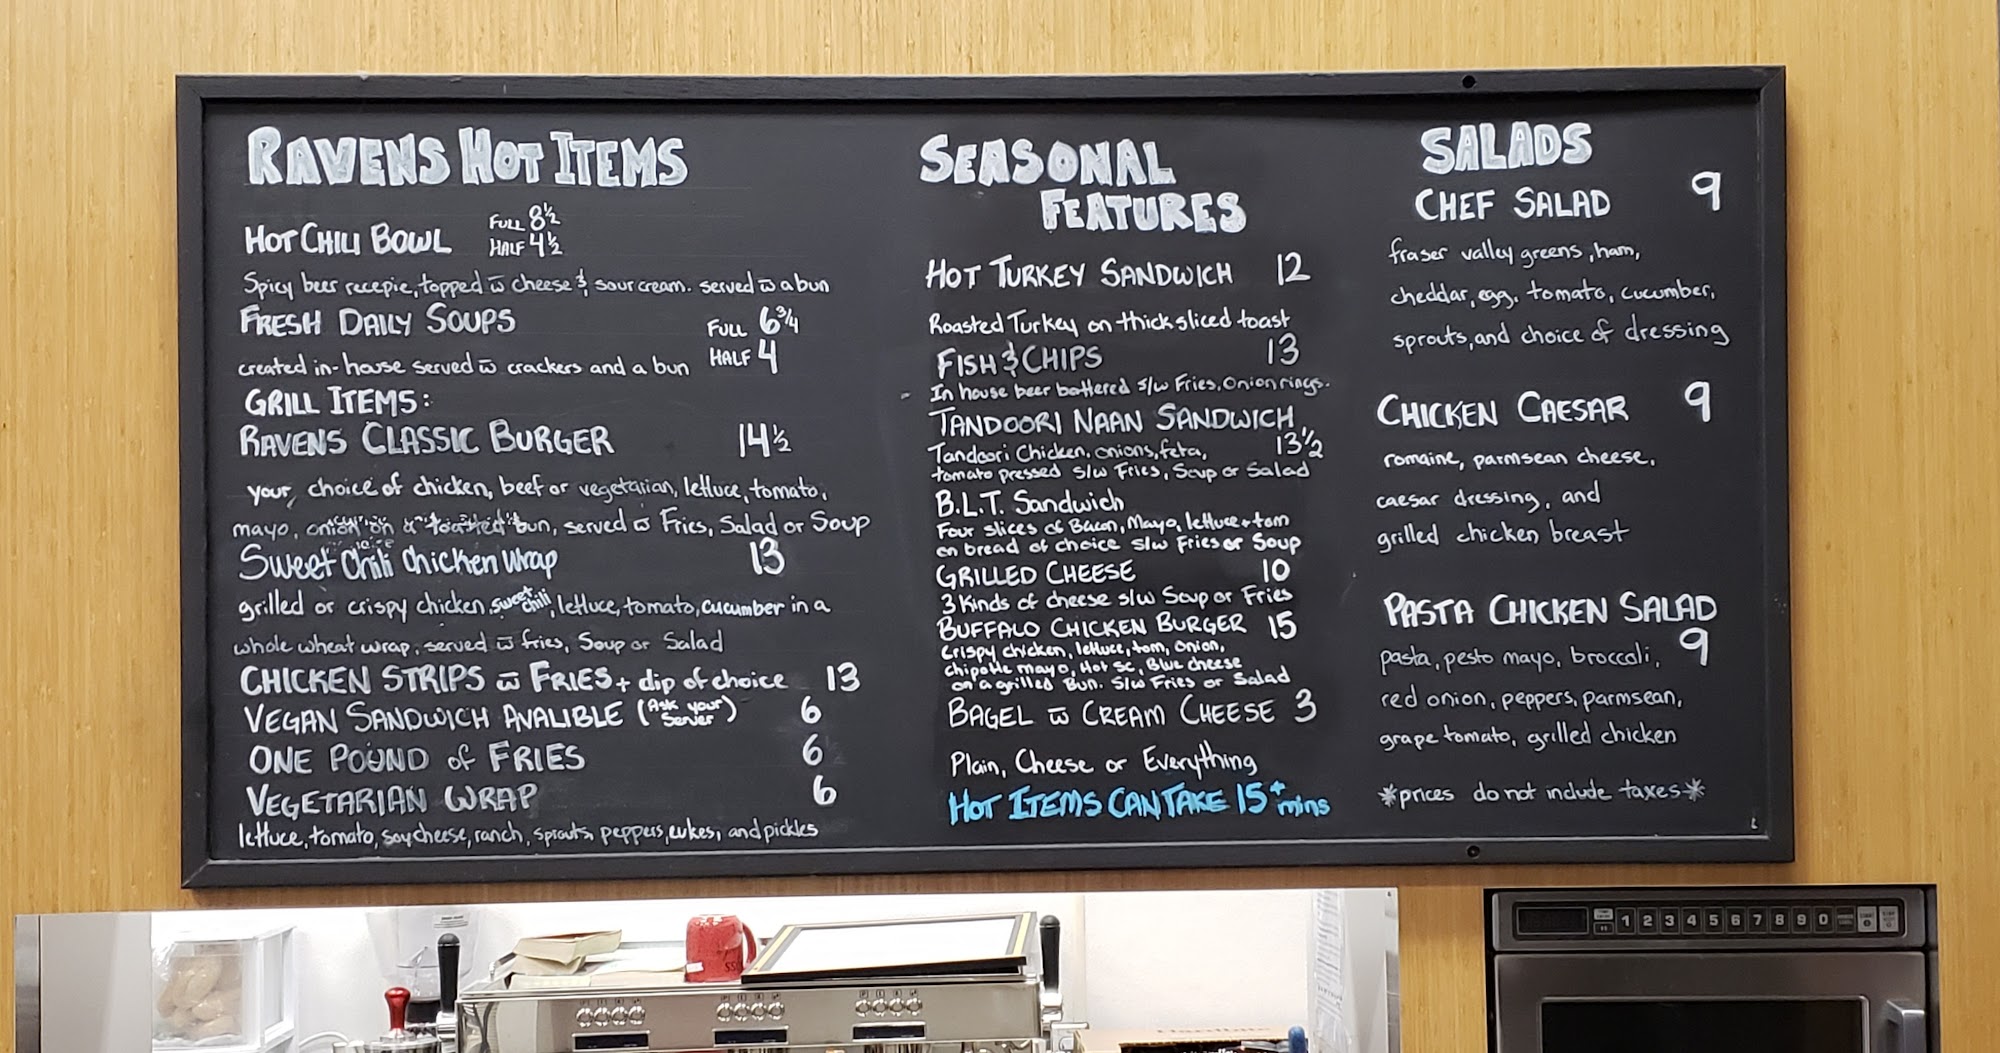 RAVENS HOT ITEMS
HOT CHILI BOWL FULL 8½ HALF 4½
Spicy beer recepie, topped w̄ cheese & sour cream. served w̄ a bun
FRESH DAILY SOUPS FULL 6¾
created in-house served w̄ crackers and a bun HALF 4
GRILL ITEMS:
RAVENS CLASSIC BURGER 14½
your choice of chicken, beef or vegetarian, lettuce, tomato,
mayo, onion on a toasted bun, served w̄ Fries, Salad or Soup
Sweet Chili Chicken Wrap 13
grilled or crispy chicken, sweet chili, lettuce, tomato, cucumber in a
whole wheat wrap, served w̄ fries, Soup or Salad
CHICKEN STRIPS w̄ FRIES + dip of choice 13
VEGAN SANDWICH AVALIBLE (Ask your Server) 6
ONE POUND of FRIES 6
VEGETARIAN WRAP 6
lettuce, tomato, soy cheese, ranch, sprouts, peppers, cukes, and pickles
SEASONAL
FEATURES
HOT TURKEY SANDWICH 12
Roasted Turkey on thick sliced toast
FISH & CHIPS 13
In house beer battered s/w Fries, Onion rings.
TANDOORI NAAN SANDWICH
Tandoori Chicken, onions, feta, 13½
tomato pressed s/w Fries, Soup or Salad
B.L.T. Sandwich
Four slices of Bacon, Mayo, lettuce + tom
on bread of choice s/w Fries or Soup
GRILLED CHEESE 10
3 Kinds of cheese s/w Soup or Fries
BUFFALO CHICKEN BURGER 15
Crispy chicken, lettuce, tom, onion,
chipotle mayo, Hot sc, Blue cheese
on a grilled Bun. S/w Fries or Salad
BAGEL w̄ CREAM CHEESE 3
Plain, Cheese or Everything
HOT ITEMS CAN TAKE 15+ mins
SALADS
CHEF SALAD 9
fraser valley greens, ham,
cheddar, egg, tomato, cucumber,
sprouts, and choice of dressing
CHICKEN CAESAR 9
romaine, parmsean cheese,
caesar dressing, and
grilled chicken breast
PASTA CHICKEN SALAD
pasta, pesto mayo, broccoli, 9
red onion, peppers, parmsean,
grape tomato, grilled chicken
*prices do not include taxes*
1 2 3 4 5 6 7 8 9 0